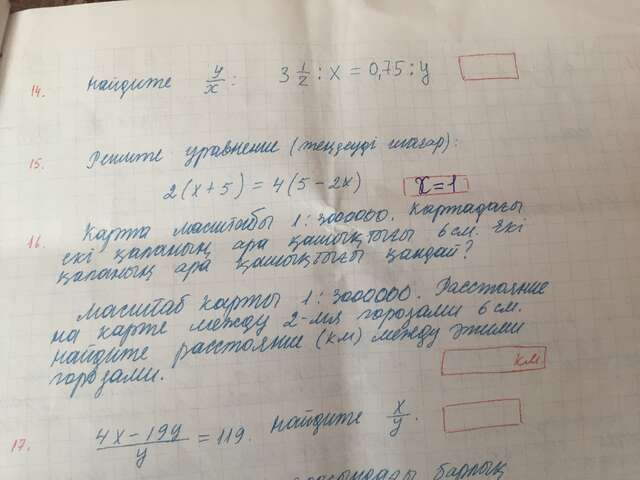 14. Найдите y/x: 3 1/2 : x = 0,75 : y
15. Решите уравнение (теңдеуді шешер):
2(x+5) = 4(5-2x) x=1
16. Карта масштабы 1:3000000. Картадағы
екі қаланың ара қашықтығы 6 см. Екі
қаланың ара қашықтығы қандай?
Масштаб карты 1:3000000. Расстояние
на карте между 2-мя городами 6 см.
Найдите расстояние (км) между этими
городами.
км
17. (4x-19y)/y = 119. Найдите x/y.
барлық